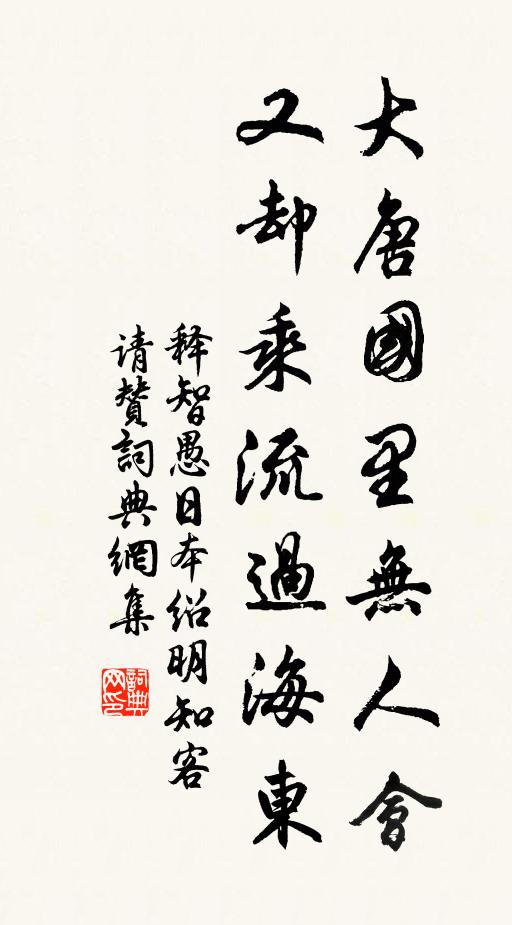 大唐國里無人會
又却乘流過海東
释智愚日本绍明知客
请赞詞典網集
詞典网印